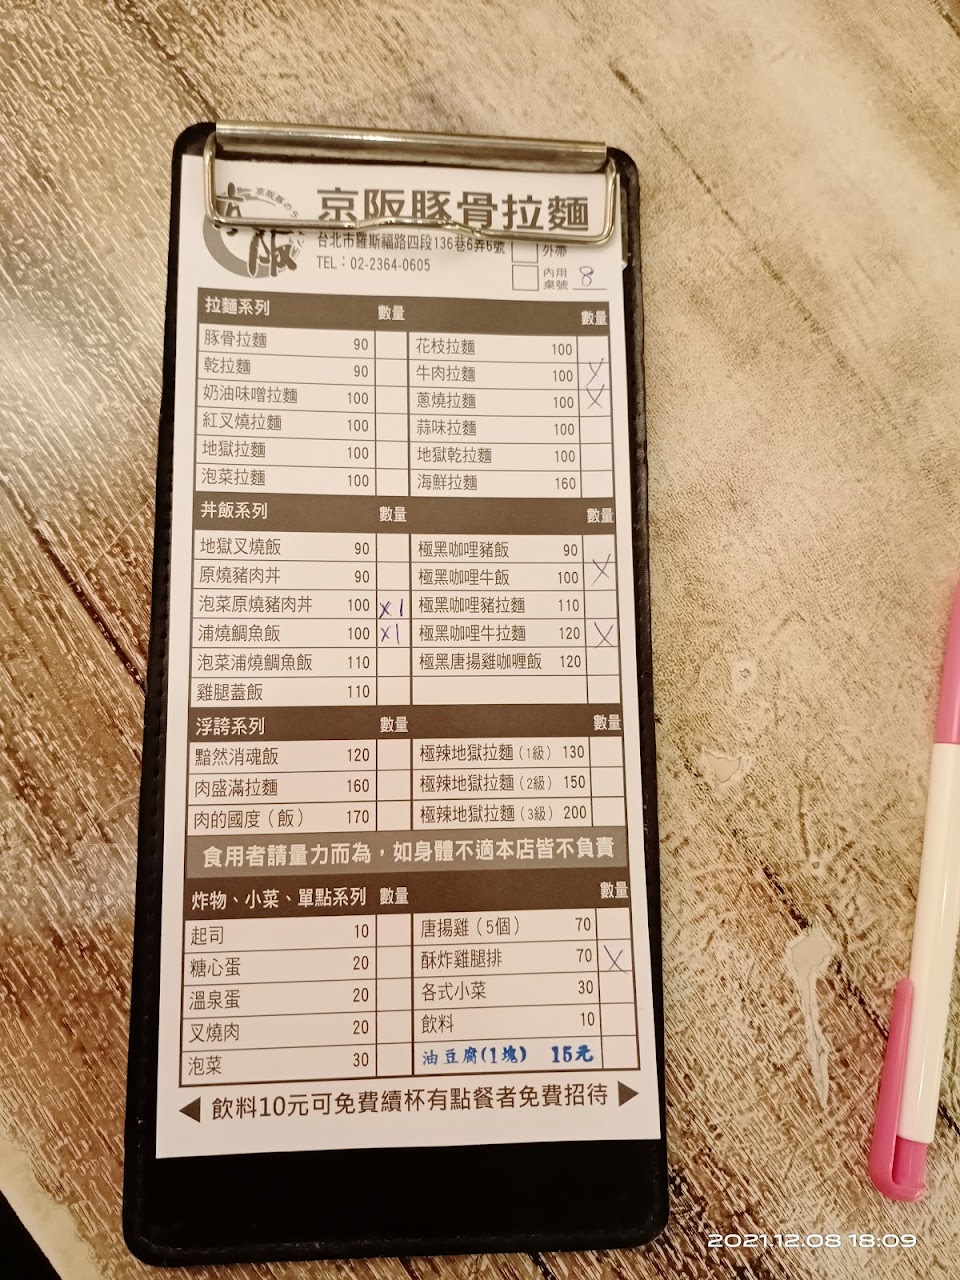 京阪豚骨拉麵
台北市羅斯福路四段136巷6弄6號 外帶
TEL：02-2364-0605 內用桌號 8
拉麵系列 數量 數量
豚骨拉麵 90 花枝拉麵 100
乾拉麵 90 牛肉拉麵 100 X
奶油味噌拉麵 100 蔥燒拉麵 100 X
紅叉燒拉麵 100 蒜味拉麵 100
地獄拉麵 100 地獄乾拉麵 100
泡菜拉麵 100 海鮮拉麵 160
丼飯系列 數量 數量
地獄叉燒飯 90 極黑咖哩豬飯 90
原燒豬肉丼 90 極黑咖哩牛飯 100 X
泡菜原燒豬肉丼 100 x1 極黑咖哩豬拉麵 110
浦燒鯛魚飯 100 x1 極黑咖哩牛拉麵 120 X
泡菜浦燒鯛魚飯 110 極黑唐揚雞咖喱飯 120
雞腿蓋飯 110
浮誇系列 數量 數量
黯然消魂飯 120 極辣地獄拉麵（1級） 130
肉盛滿拉麵 160 極辣地獄拉麵（2級） 150
肉的國度（飯） 170 極辣地獄拉麵（3級） 200
食用者請量力而為，如身體不適本店皆不負責
炸物、小菜、單點系列 數量 數量
起司 10 唐揚雞（5個） 70
糖心蛋 20 酥炸雞腿排 70 X
溫泉蛋 20 各式小菜 30
叉燒肉 20 飲料 10
泡菜 30 油豆腐(1塊) 15元
◀ 飲料10元可免費續杯有點餐者免費招待 ▶
2021.12.08 18:09